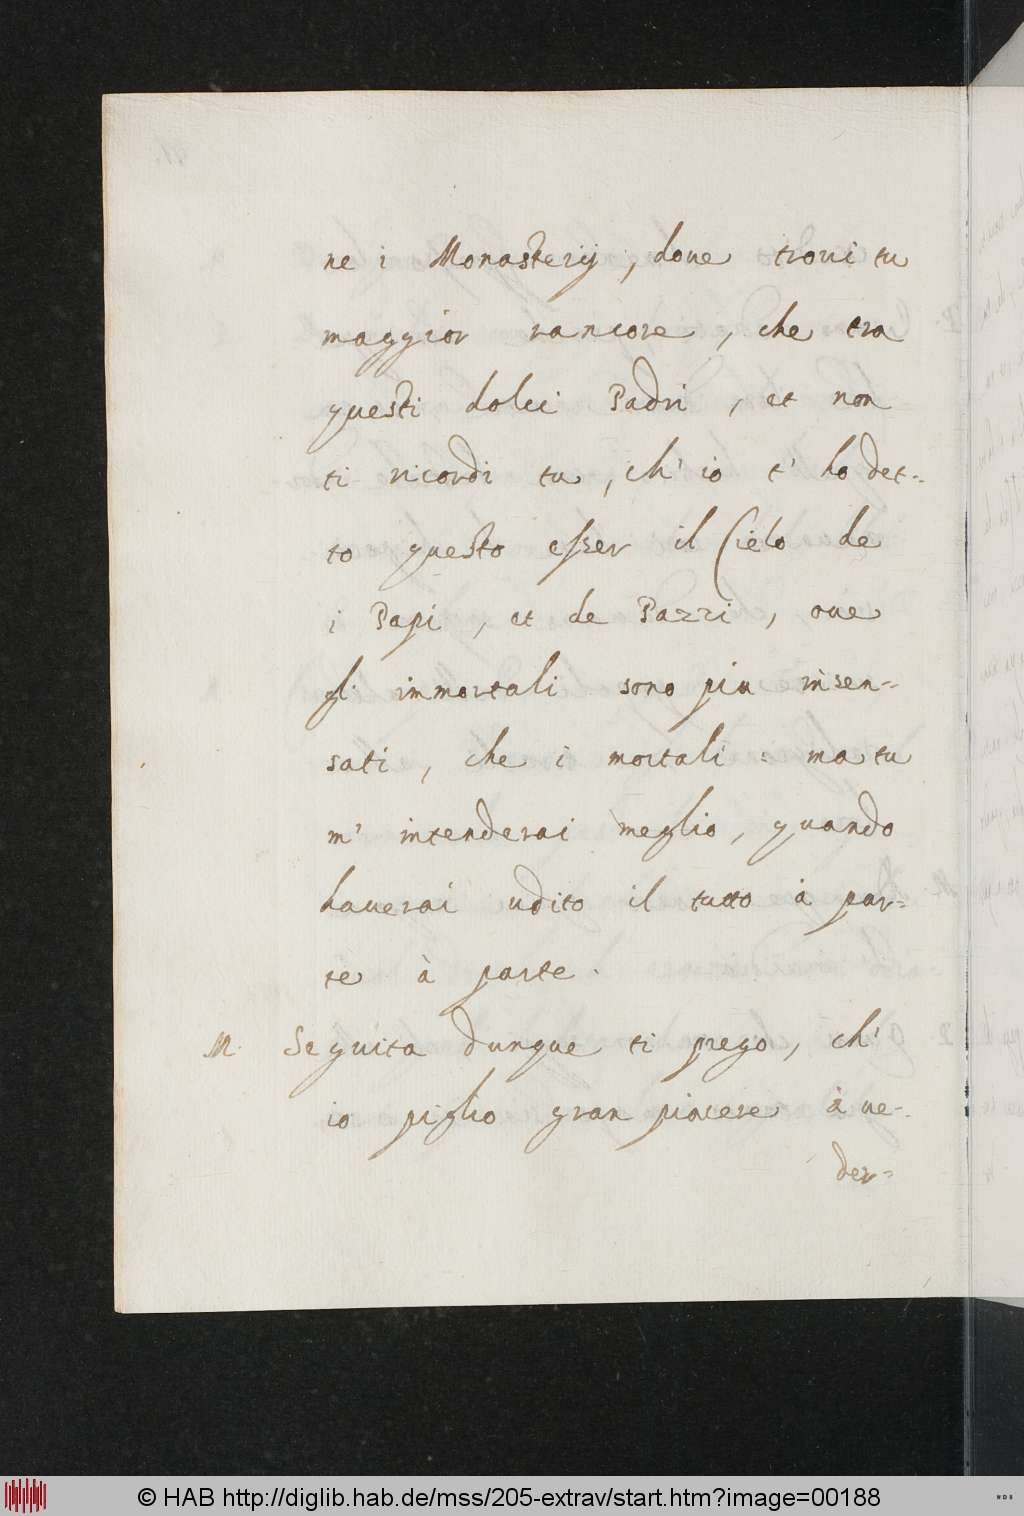 ne i Monasterij, doue troui tu
maggior rancore, che tra
questi dolci Padri, et non
ti ricordi tu, ch' io t' ho det-
to questo esser il Cielo de
i Papi, et de Pazzi, oue
gl' immortali sono piu insen-
sati, che i mortali: ma tu
m' intenderai meglio, quando
hauerai udito il tutto à par-
te à parte.
M. Seguita dunque ti prego, ch'
io piglio gran piacere à ue-
der-
© HAB http://diglib.hab.de/mss/205-extrav/start.htm?image=00188